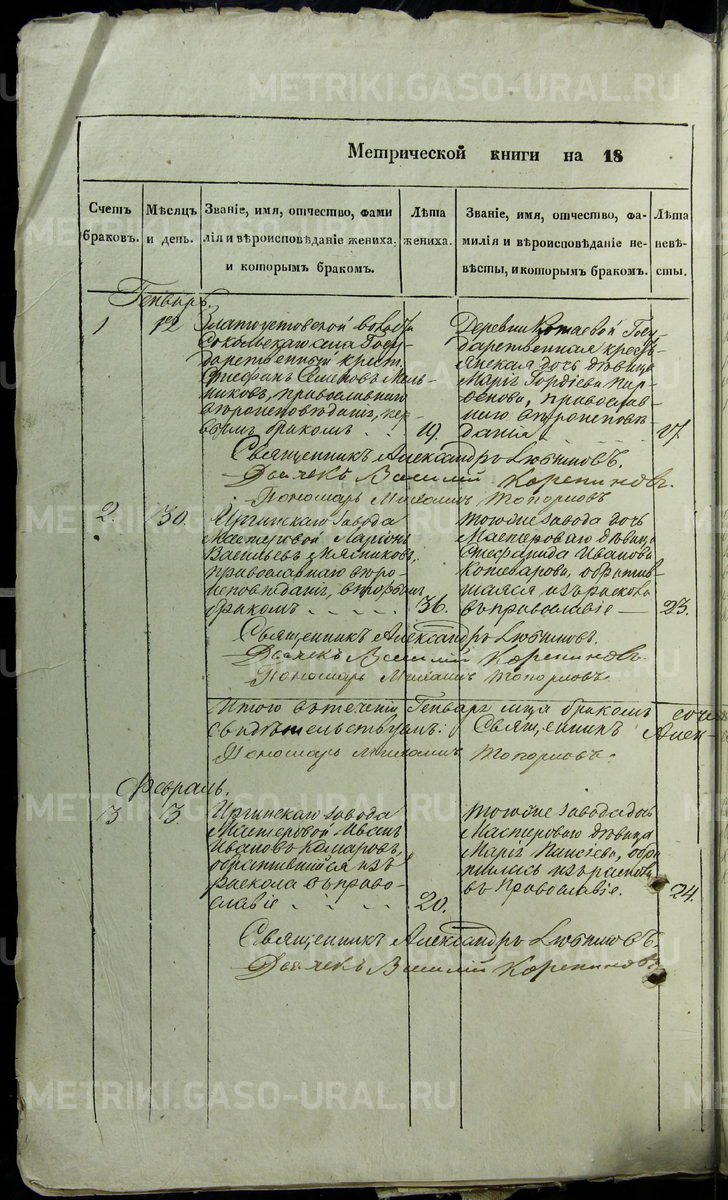 METRIKI.GASO-URAL.RU
Метрической книги на 18
Счетъ браковъ.
Мѣсяцъ и день.
Званіе, имя, отчество, фами
лія и вѣроисповѣданіе жениха,
и которымъ бракомъ.
Лѣта жениха.
Званіе, имя, отчество, фа-
милія и вѣроисповѣданіе не-
вѣсты, и которымъ бракомъ.
Лѣта невѣ-
сты.
Генварь
1
12
Златоустовской волости
Сокольскаго села Госу-
дарственный крест.
Стефанъ Семеновъ Мель-
никовъ, православнаго
вѣроисповѣданія, пер-
вымъ бракомъ
19.
Деревни Государственная крестьянская дочь дѣвица
Марія Гордіева Пар-
фенова, православ-
наго вѣроисповѣ-
данія
17.
Священникъ Александръ Любимовъ.
Дьячекъ Василій Корепиновъ.
Пономарь Михаилъ Топорковъ
2.
30.
Иргинскаго завода
Мастеровой Ларіонъ
Васильевъ Мясниковъ,
православнаго вѣро-
исповѣданія, вторымъ
бракомъ
36.
тогоже завода дочь
Мастероваго дѣвица
Стефанида Иванова
обратив-
шаяся изъ раскола
въ православіе
23.
Священникъ Александръ Любимовъ.
Дьячекъ Василій Корепиновъ.
Пономарь Михаилъ Топорковъ.
Итого въ теченіи Генваря мца бракомъ соче-
свидѣтельствуемъ: Священникъ Алек-
Пономарь Михаилъ Топорковъ.
Февраль.
3
3.
Иргинскаго завода
Мастеровой Иванъ
Ивановъ Комаровъ,
обратившійся изъ
раскола въ право-
славіе
20.
тогоже завода дочь
Мастероваго дѣвица
Марія Паисіева, обра
тилась изъ раскола
въ Православіе.
24.
Священникъ Александръ Любимовъ.
Дьячекъ Василій Корепиновъ